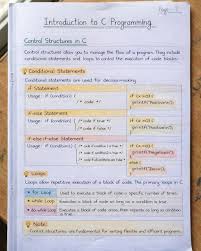 Page: 1
Introduction to C Programming
Control Structures in C
Control structures allow you to manage the flow of a program. They include
conditional statements and loops to control the execution of code blocks.
Conditional Statements
Conditional statements are used for decision-making.
if Statement
Usage : if (condition) {
/* code if true */
}
if (x > 0) {
printf("Positive");
}
if-else Statement
Usage : if (condition) {
/* code if true */
} else {
/* code if false */
}
if (x > 0) {
printf("Positive");
} else {
if-else if-else Statement
Usage : if (condition1) {
else {
Loops
Loops allow repetitive execution of a block of code. The primary loops in C
for Loop : Used to execute a block of code a specific number of times.
while Loop : Executes a block of code as long as a condition is true.
do-while Loop : Executes a block of code once, then repeats as long as condition
is true.
Note:
Control structures are fundamental for writing flexible and efficient programs.